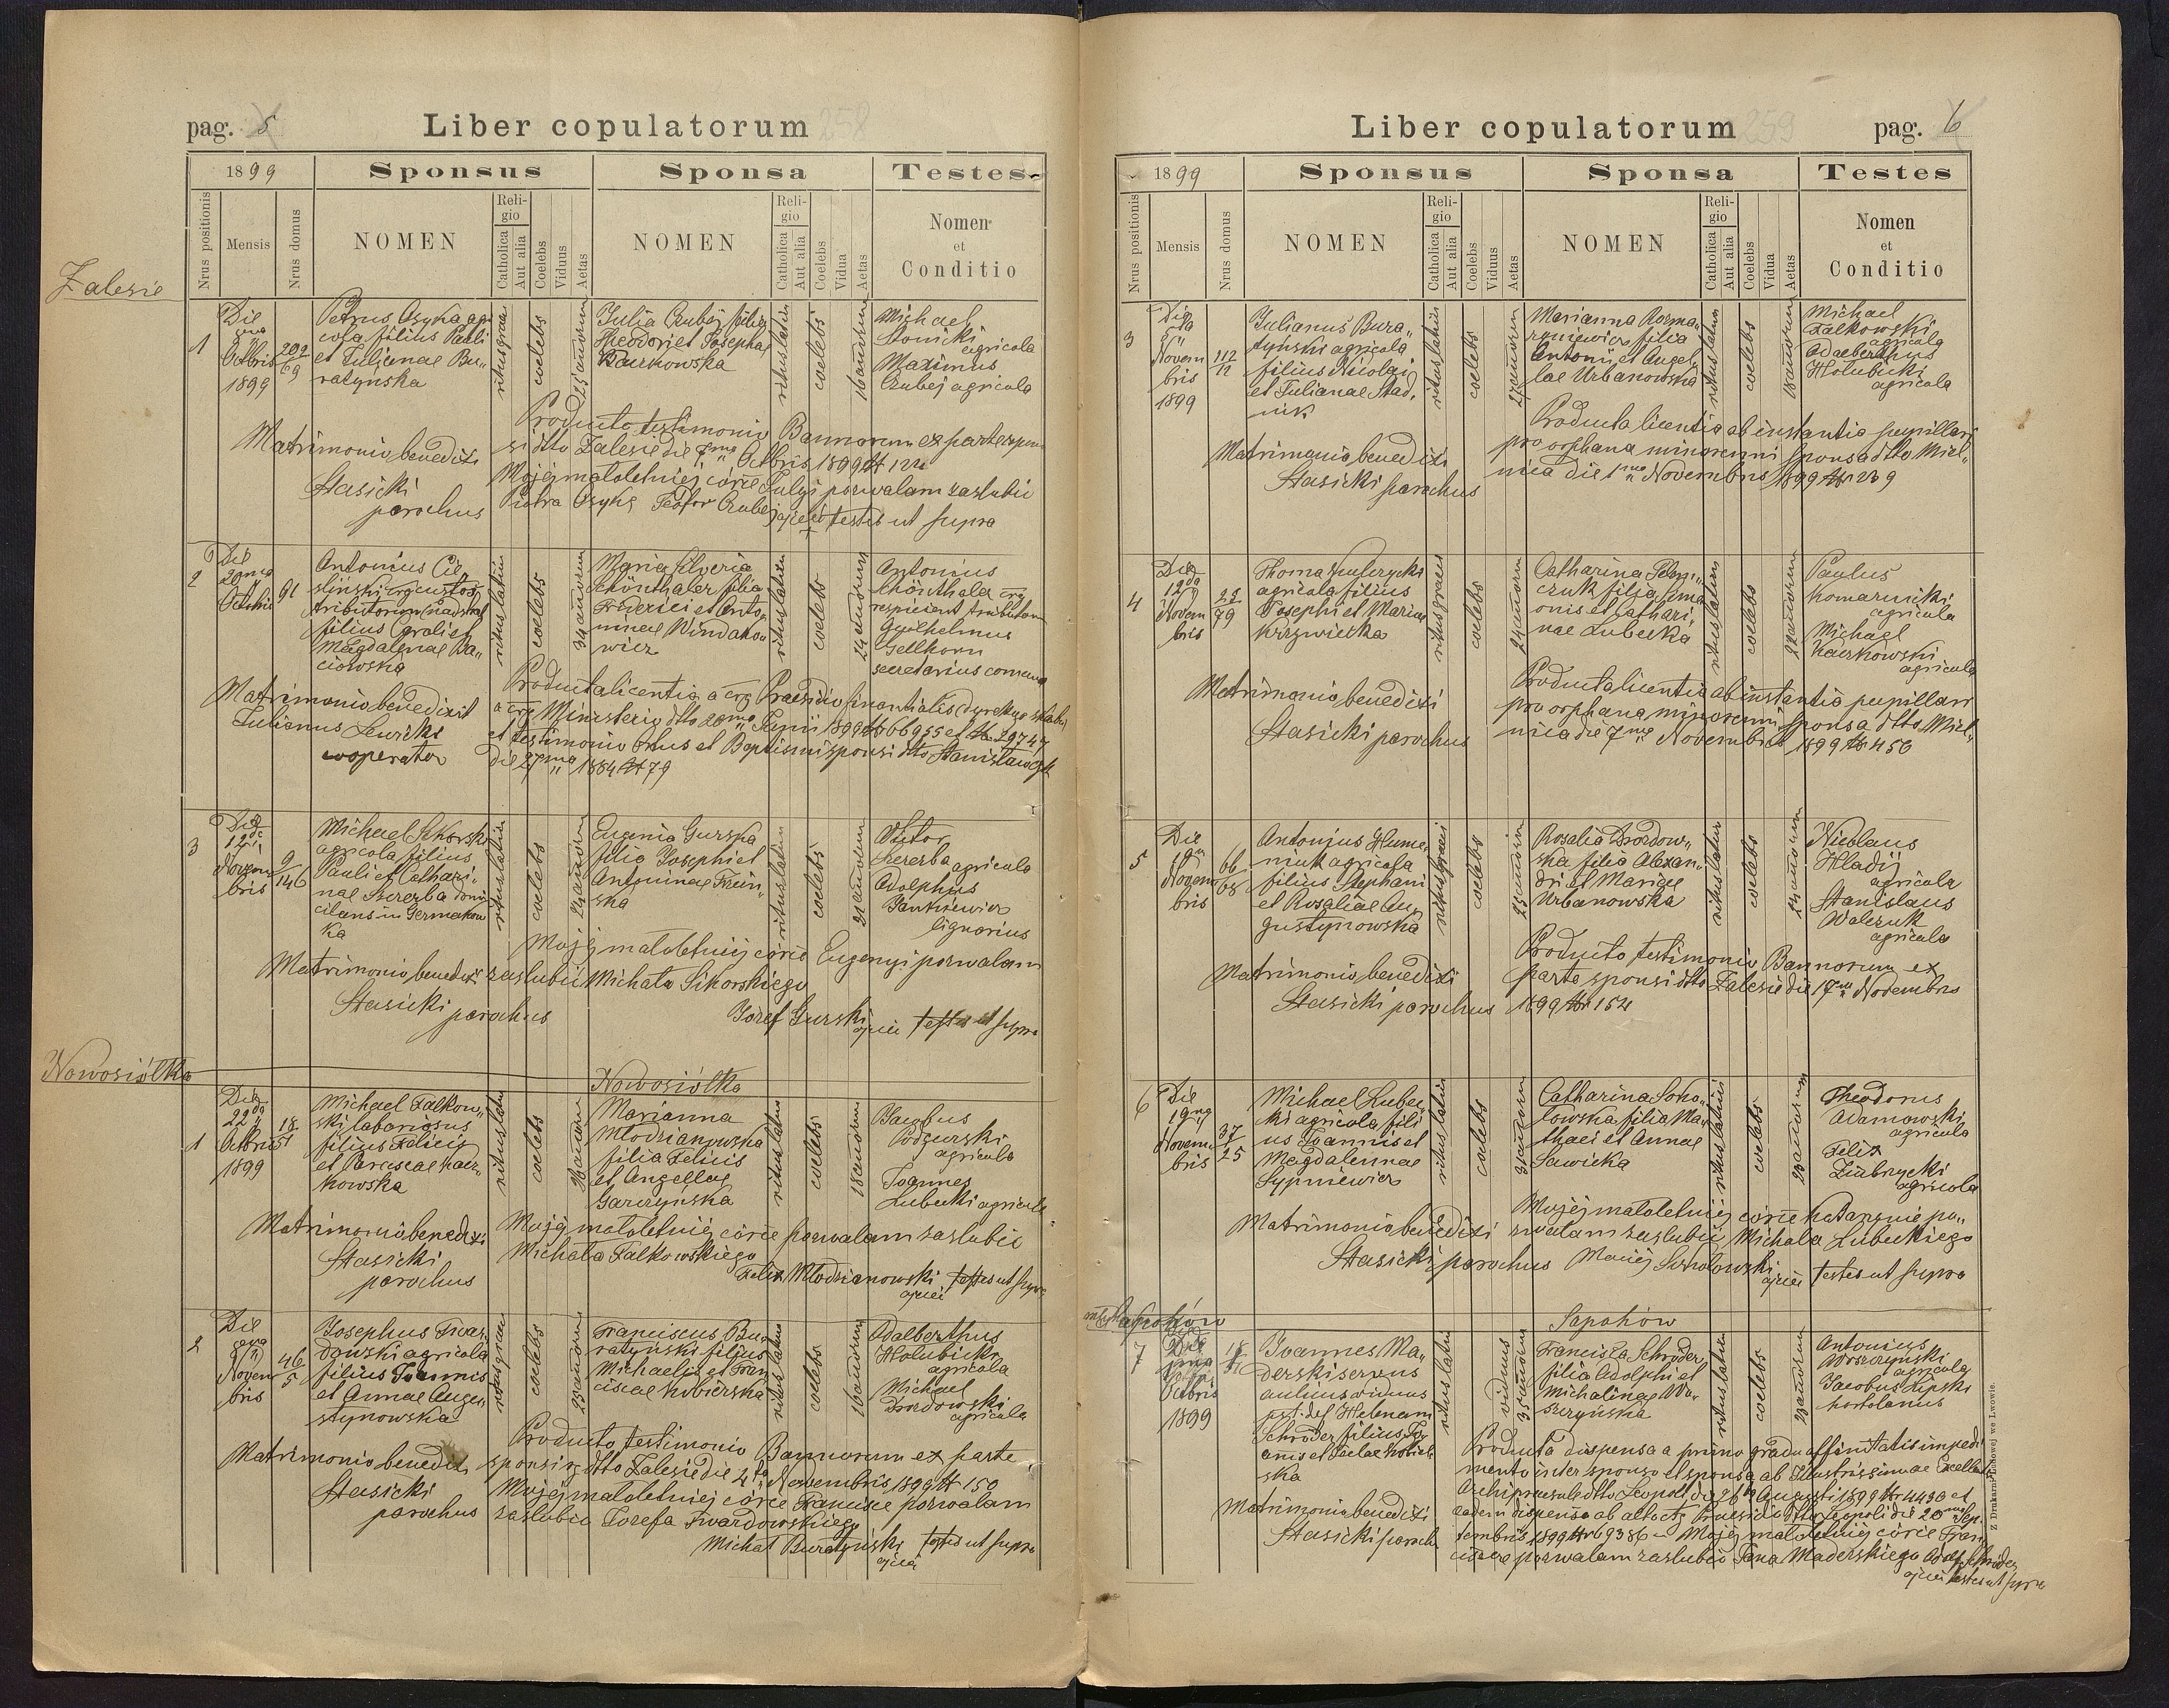 pag. 5
Liber copulatorum
258
1899
Sponsus
Sponsa
Testes
Nrus positionis
Mensis
Nrus domus
NOMEN
Religio
Catholica
Aut alia
Coelebs
Viduus
Aetas
NOMEN
Religio
Catholica
Aut alia
Coelebs
Vidua
Aetas
Nomen
et
Conditio
Zalesie
1
Die
Octbris
1899
202
69
Petrus Czyka agri
cola filius Pauli
et Julianae Bu„
ratynska
ritus graeci
coelebs
25 annorum
Julia Czubej filia
Theodori et Josephae
Baczkowska
ritus latini
coelebs
16 annorum
Michael
agricola
Maximus
Czubej agricola
Matrimonio benedixi
Stasicki
parochus
Producto testimonio Bannorum ex parte spon
si dtto Zalesie die Octbris 1899 № 122
Mojéj małoletniéj córce Julyi pozwalam zaslubić
Piotra Czykę Teofor Czubej ojciec testes ut supra
2
Die
20ma
Octobris
91
Antonius Cie
slinski
filius Caroli et
Magdalenae Ba„
ciowska
ritus latini
coelebs
34 annorum
Maria Silveria
Schönthaler filia
Friderici et Anto
ninae Windako„
wicz
ritus latini
coelebs
24 annorum
Antonius
Schönthaler
Guilhelmus
Gellhorn
secretarius
Matrimonio benedixit
Julianus Lewicki
cooperator
Producta licentia a Praesidio
a Ministerio dtto 1899 № 66955 et № 29747
et testimonio Ortus et Baptismi sponsi dtto
die 27ma 1884 № 79
3
Die
12
Novem
bris
9
146
Michael Sikorski
agricola filius
Pauli et Cathari„
nae Szczerba domi
cilans in Germakow
ka
ritus latini
coelebs
24 annorum
Eugenia Gurska
filia Josephi et
Antoninae
ska
ritus latini
coelebs
21 annorum
Victor
Szczerba agricola
Adolphus
Jankiewicz
lignarius
Matrimonio benedixi
Stasicki
parochus
Mojéj małoletniéj córce Eugenyi pozwalam
zaslubić Michała Sikorskiego
Józef Gurski ojciec testes ut supra
Nowosiółka
Nowosiółka
1
Die
22da
Octbris
1899
18
51
Michael Falkow„
ski laboriosus
filius Felicis
et Parascae Kacz„
kowska
ritus latini
coelebs
annorum
Marianna
Młodzianowska
filia Felicis
et Angellae
Garczyńska
ritus latini
coelebs
18 annorum
Jacobus
Podgurski
agricola
Joannes
Lubecki agricola
Matrimonio benedixi
Stasicki
parochus
Mojéj małoletniéj córce pozwalam zaslubić
Michała Falkowskiego
Felix Młodzianowski ojciec testes ut supra
2
Die
Novem
bris
46
5
Josephus Twar„
dowski agricola
filius Joannis
et Annae Augu„
stynowska
ritus graeci
coelebs
23 annorum
Franciscus Bu„
ratynski filius
Michaelis et Fran
ciscae Kobierska
ritus latini
coelebs
16 annorum
Adalberthus
Holubicki
agricola
Michael
agricola
Matrimonio benedixi
Stasicki
parochus
Producto testimonio Bannorum ex parte
sponsi dtto Zalesie die 4ta Novembris 1899 № 150
Mojéj małoletniéj córce Francisce pozwalam
zaslubić Jozefa Twardowskiego
Michał Buratyński ojciec testes ut supra
Liber copulatorum
259
pag. 6
1899
Sponsus
Sponsa
Testes
Nrus positionis
Mensis
Nrus domus
NOMEN
Religio
Catholica
Aut alia
Coelebs
Viduus
Aetas
NOMEN
Religio
Catholica
Aut alia
Coelebs
Vidua
Aetas
Nomen
et
Conditio
3
Die
Novem
bris
1899
112
11
Julianus Bura„
tynski agricola
filius Nicolai
et Julianae Stad„
nik
ritus latini
coelebs
27 annorum
Marianna Kozma„
filia
Antonii et Angel
lae Urbanowska
ritus latini
coelebs
18 annorum
Michael
Falkowski
agricola
Adalberthus
Holubicki
agricola
Matrimonio benedixi
Stasicki parochus
Producta licentia ab instantia pupillari
pro orphana minorenni sponsa dtto Miel„
nica die Novembris 1899 № 239
4
Die
12da
Novem
bris
22
79
Thoma
agricola filius
Josephi et Mariae
Krzywiecka
ritus graeci
coelebs
24 annorum
Catharina
czuk filia Sime
onis et Cathari„
nae Lubecka
ritus latini
coelebs
annorum
Paulus
Komarnicki
agricola
Michael
Kaczkowski
agricola
Matrimonio benedixi
Stasicki parochus
Producta licentia ab instantia pupillari
pro orphana minorenni sponsa dtto Miel„
nica die 7ma Novembris 1899 № 450
5
Die
Novem
bris
66
68
Antonius Hume
niuk agricola
filius Stephani
et Rosaliae Au
gustynowska
ritus graeci
coelebs
25 annorum
Rosalia
ska filia Alexan„
dri et Mariae
Urbanowska
ritus latini
coelebs
24 annorum
Nicolaus
Hladij
agricola
Stanislaus
Walczuk
agricola
Matrimonio benedixi
Stasicki parochus
Producto testimonio Bannorum ex
parte sponsi dtto Zalesie die 17 Novembris
1899 № 152
6
Die
19na
Novem
bris
37
25
Michael Lubec„
ki agricola fili
us Joannis et
Magdalennae
Sypniewicz
ritus latini
coelebs
annorum
Catharina Soko„
lowska filia Ma„
thaei et Annae
Sawicka
ritus latini
coelebs
20 annorum
Theodorus
Adamowski
agricola
Felix
agricola
Matrimonio benedixi
Stasicki parochus
Mojéj małoletniéj córce Katarzynie po„
zwalam zaslubić Michała Lubeckiego
Maciéj Sokołowski ojciec testes ut supra
Sapohów
Sapohów
7
Die
Octbris
1899
Joannes Ma„
derski servus
viduus
Helenam
Schröder filius Jo
ska
ritus latini
viduus
35 annorum
Francisca Schröder
filia Adolphi et
Michalinae Wo„
szczyńska
ritus latini
coelebs
annorum
Antonius
agricola
Jacobus Lipski
hortolanus
Matrimonio benedixi
Stasicki paroch
Producta dispensa a primo gradu affinitatis impedi
mento inter sponso et sponsa ab Illustrissimae
Archipraesule dtto Leopoli die Augusti 1899 № 4430 et
eadem dispensa ab Praesidio dtto Leopoli die 20 Sep„
tembris 1899 № 69386 — Mojéj małoletniéj córce Fran
cisce pozwalam zaslubić Jana Maderskiego Adolf Schröder
ojciec testes ut supra